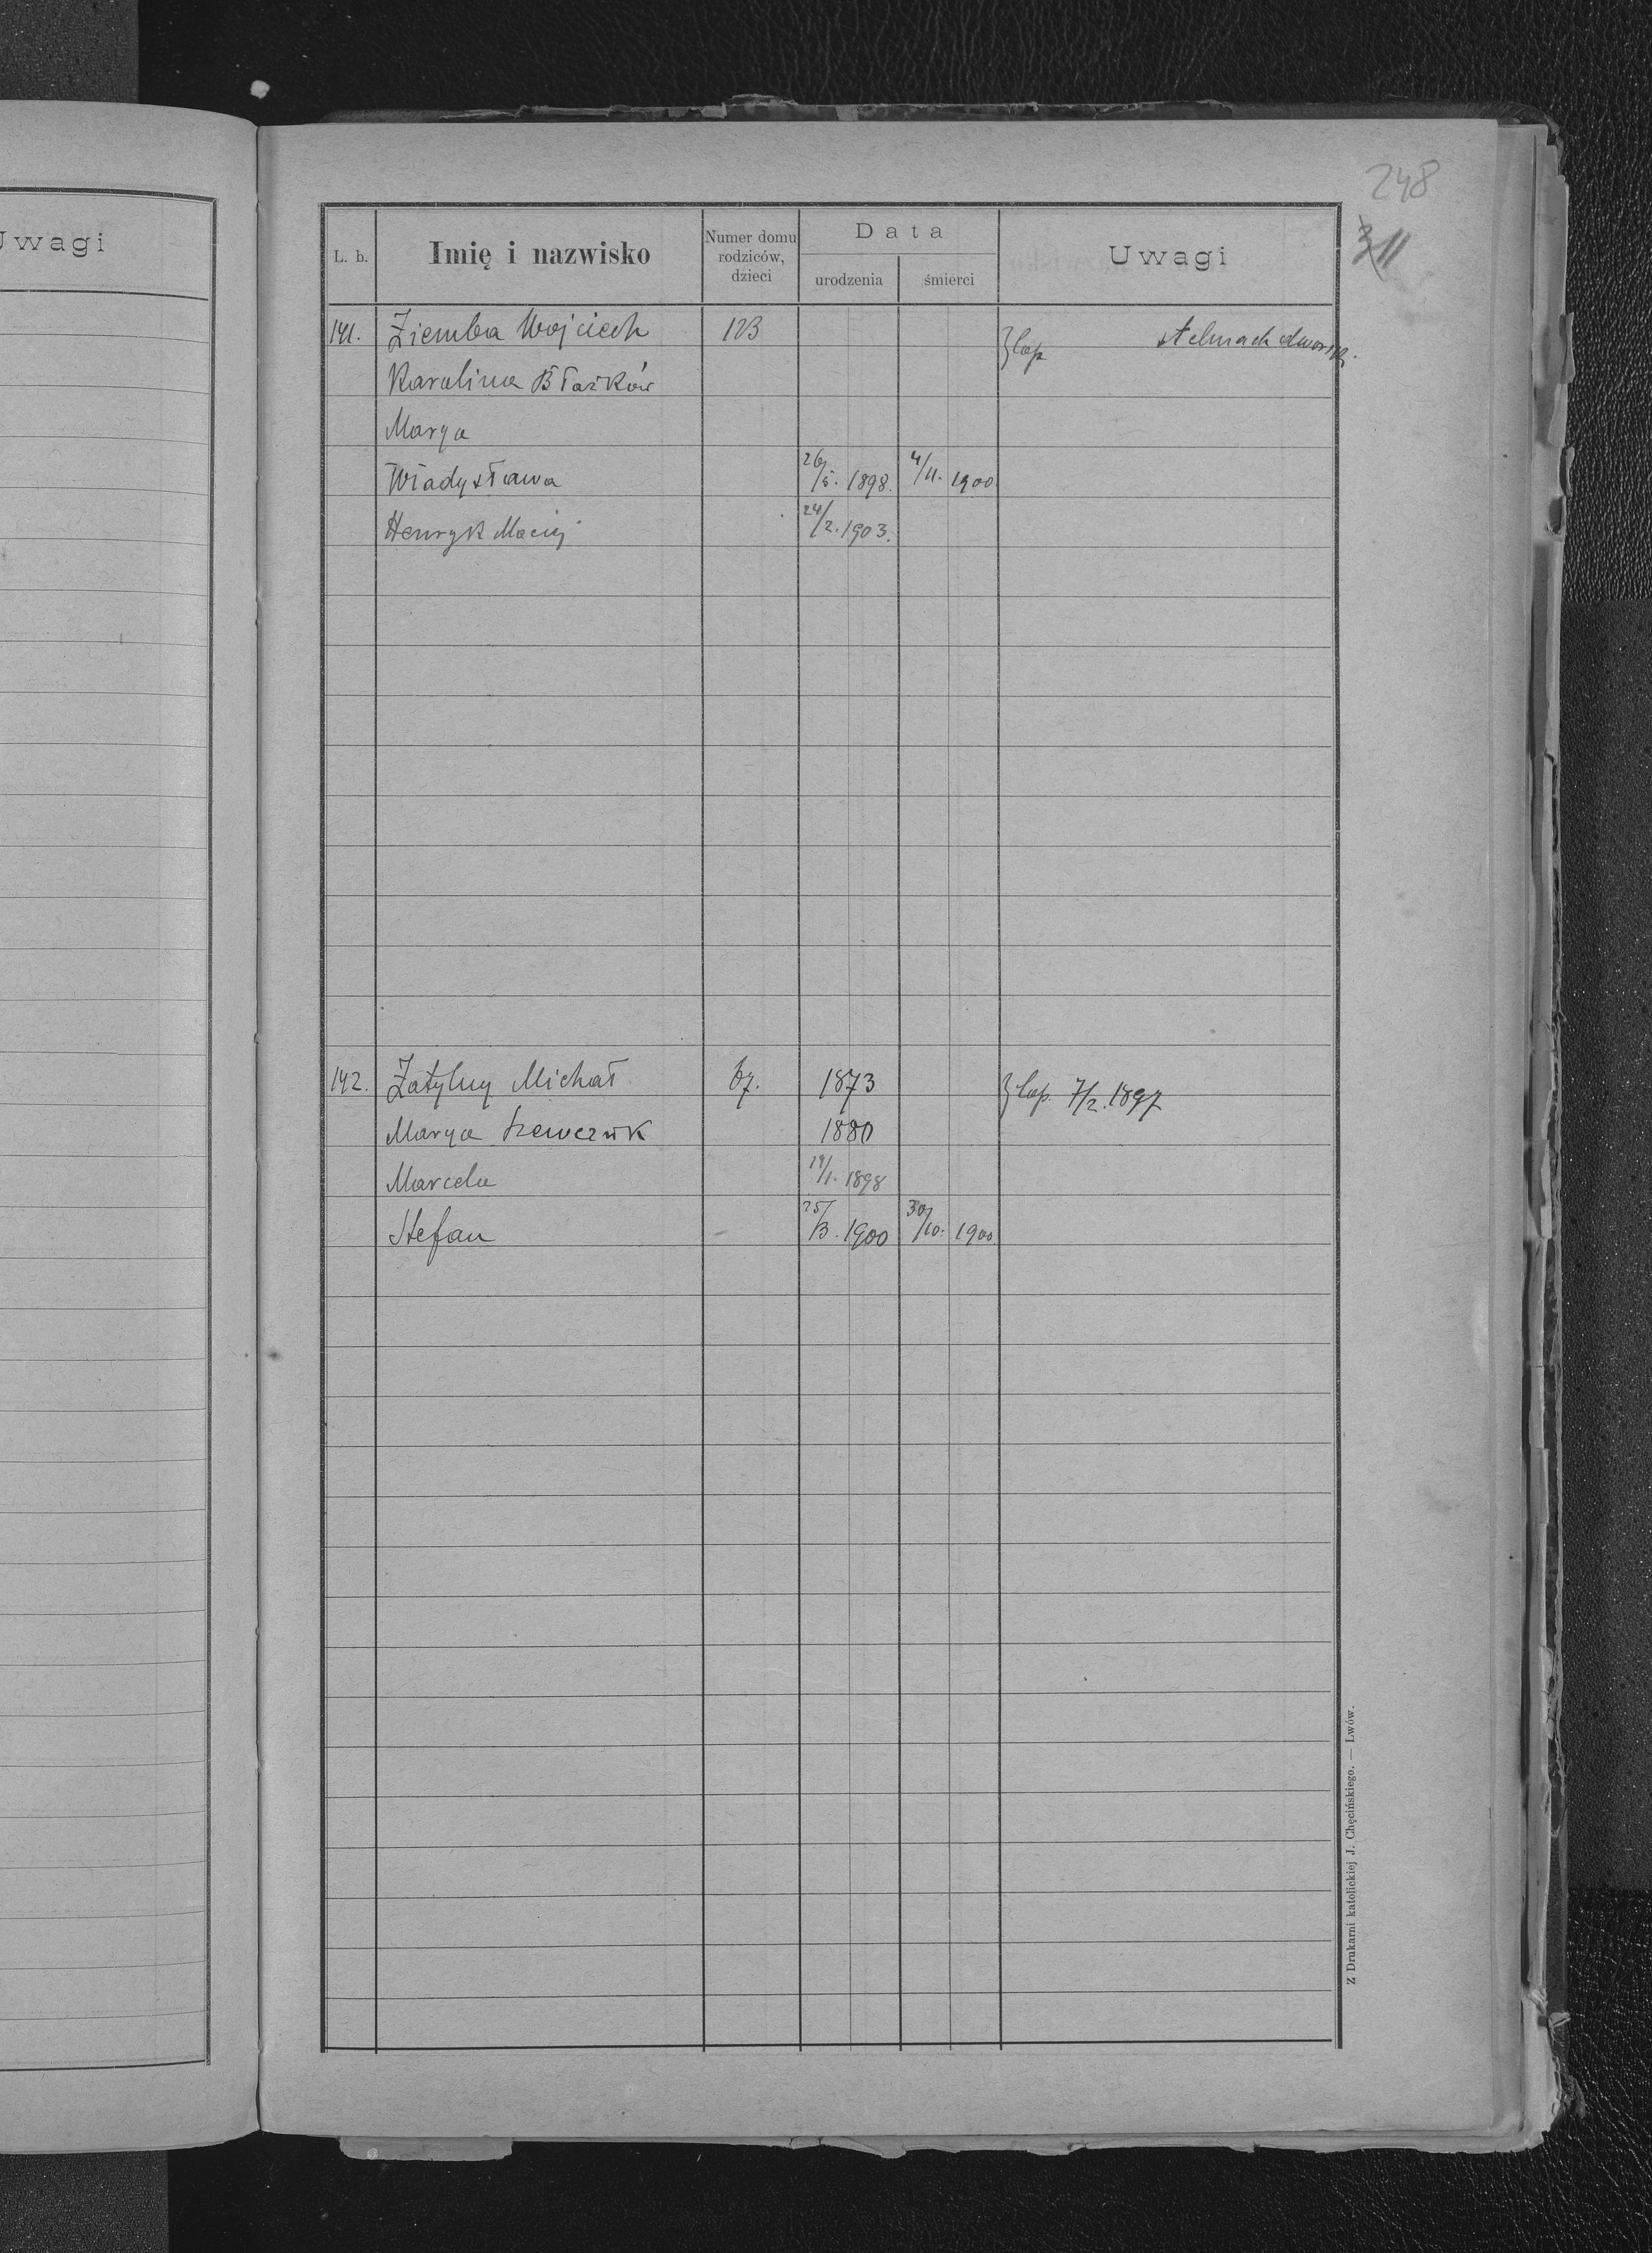 248
311
Uwagi
L. b. Imię i nazwisko Numer domu rodziców, dzieci Data urodzenia śmierci Uwagi
141. Ziemba Wojciech 123 cop stelmach dworski
Karolina Błażków
Marya
Władysława 26/5. 1898. 4/11. 1900
Henryk Maciej 24/2. 1903.
142. Zatylny Michał 67. 1873 cop. 7/2. 1897
Marya Szewczuk 1880
Marcela 19/1. 1898
Stefan 25/3. 1900 30/10. 1900
Z Drukarni katolickiej J. Chęcińskiego. — Lwów.